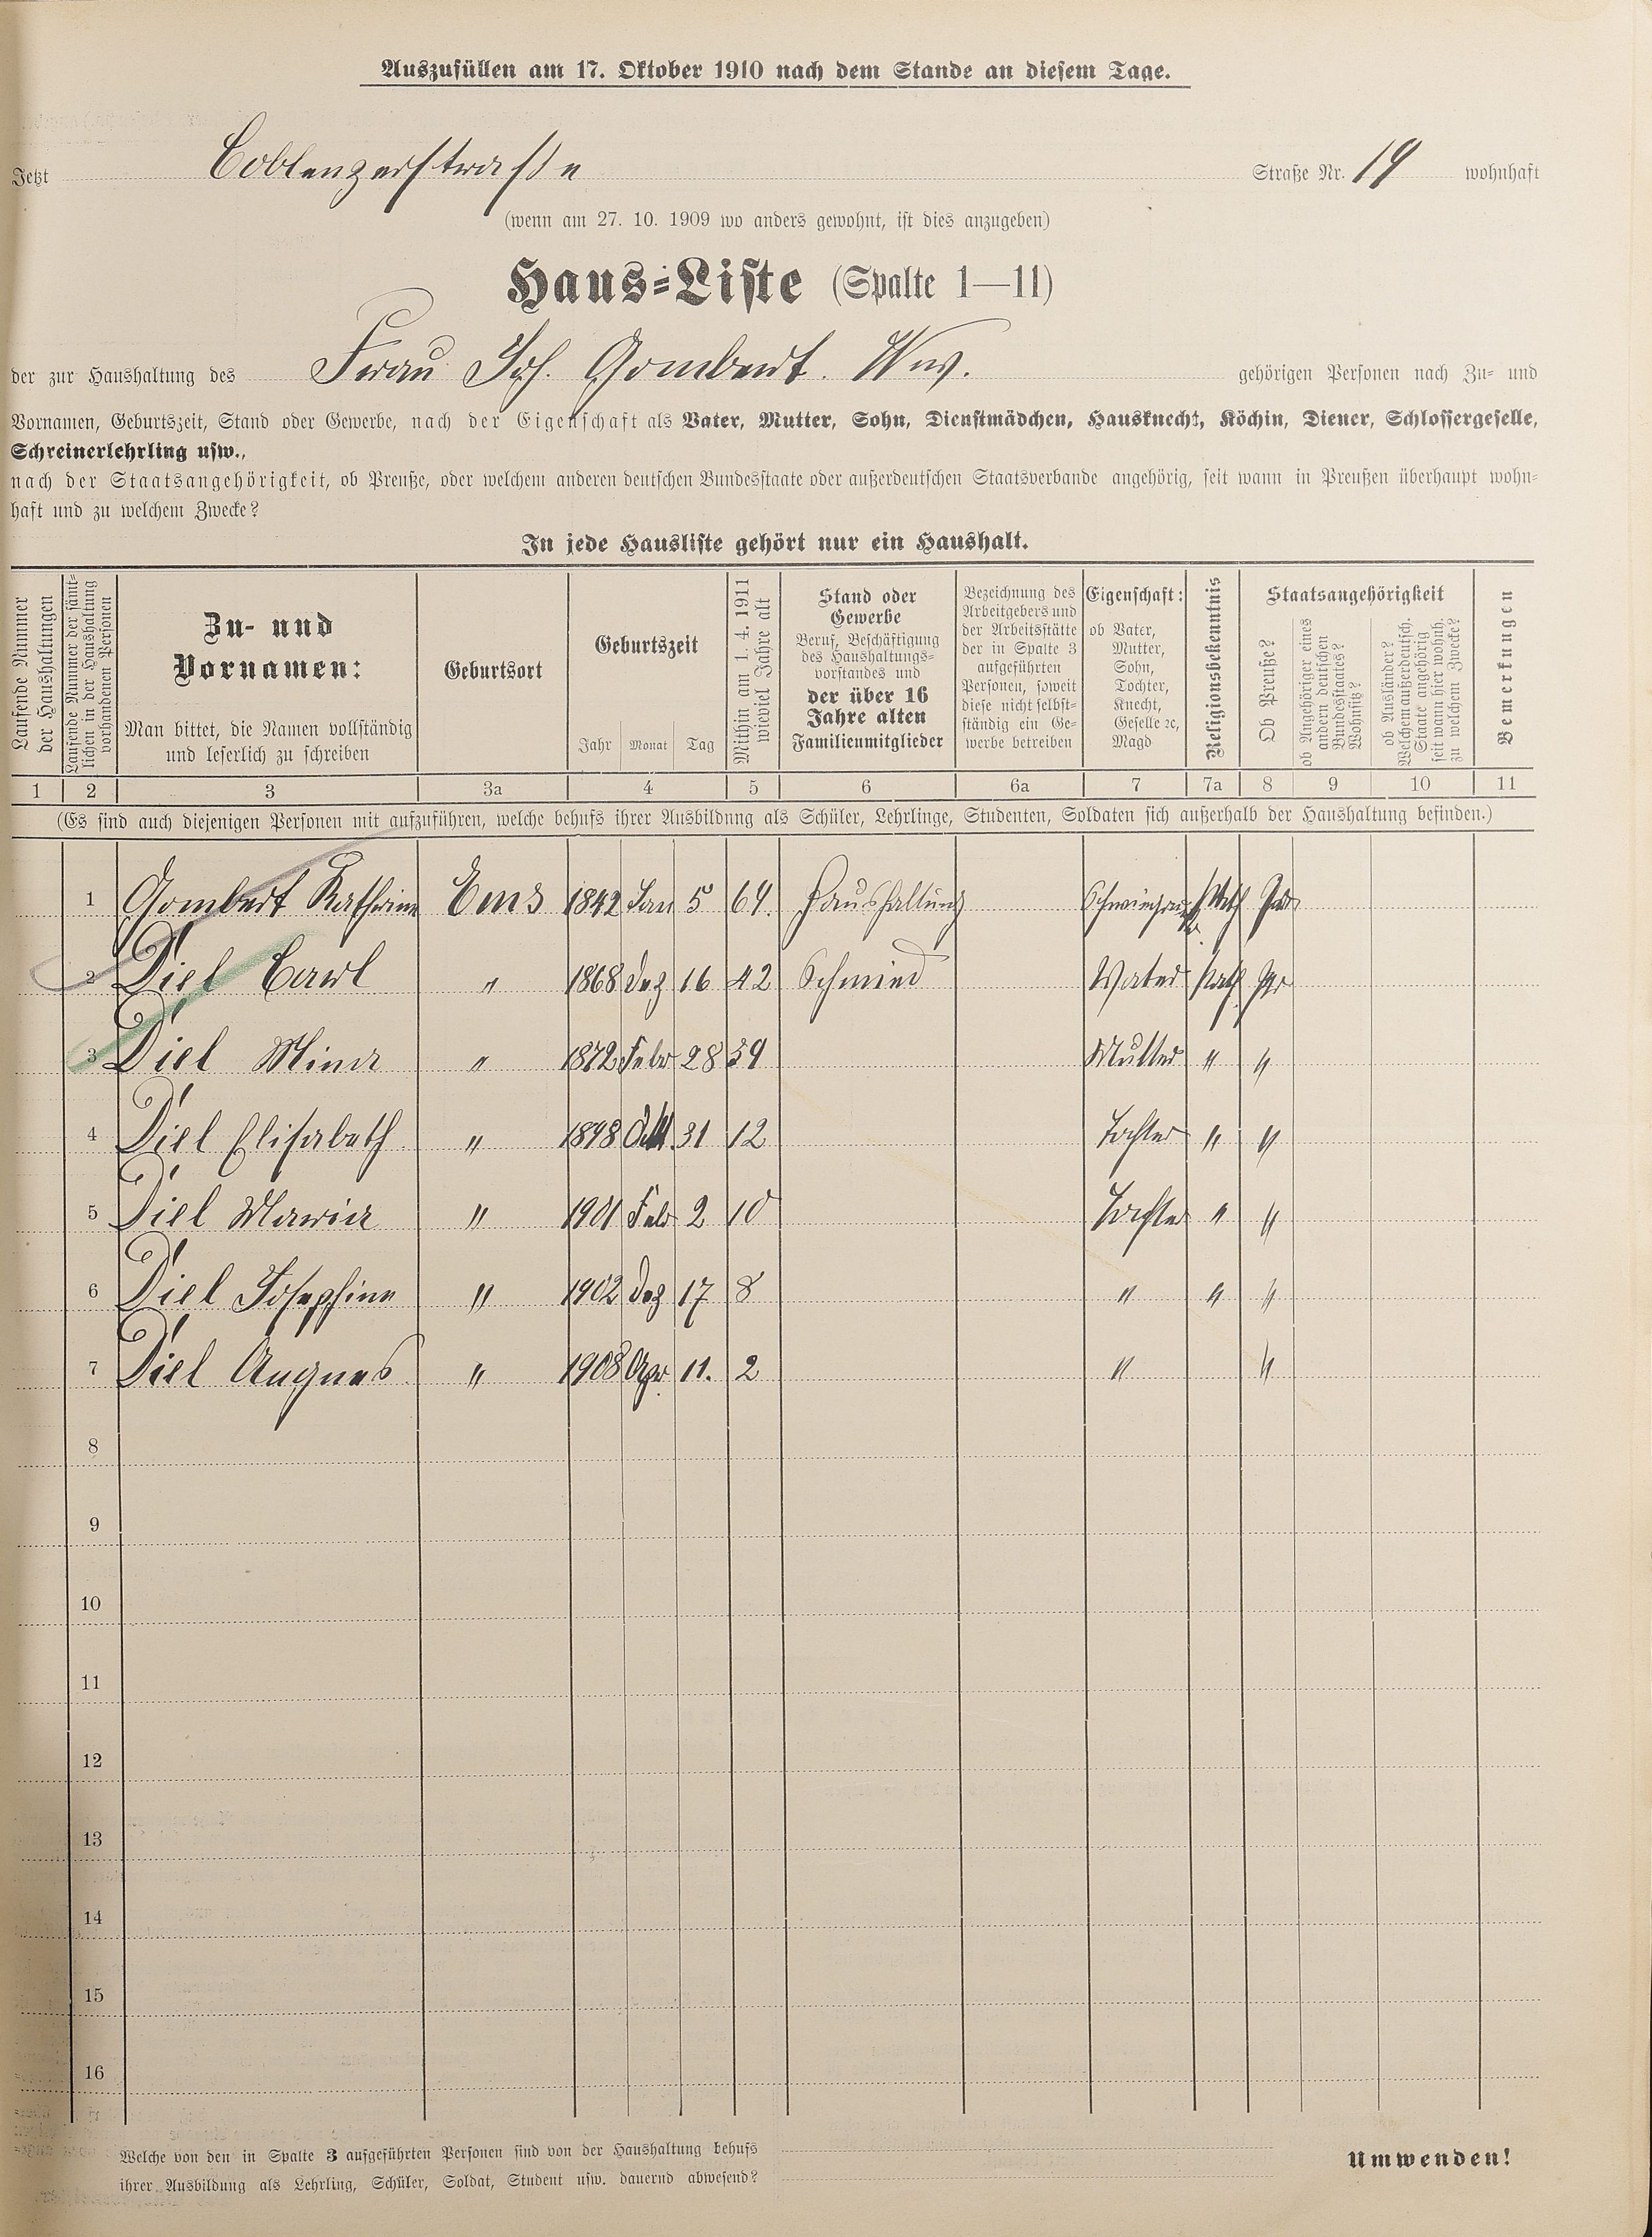 Auszufüllen am 17. Oktober 1910 nach dem Stande an diesem Tage.
Jetzt Coblenzerstraße Straße Nr. 19 wohnhaft
(wenn am 27. 10. 1909 wo anders gewohnt, ist dies anzugeben)
Haus=Liste (Spalte 1—11)
der zur Haushaltung des Frau Joh. Gombert. Ww. gehörigen Personen nach Zu= und
Vornamen, Geburtszeit, Stand oder Gewerbe, nach der Eigenschaft als Vater, Mutter, Sohn, Dienstmädchen, Hausknecht, Köchin, Diener, Schlossergeselle,
Schreinerlehrling usw.,
nach der Staatsangehörigkeit, ob Preuße, oder welchem anderen deutschen Bundesstaate oder außerdeutschen Staatsverbande angehörig, seit wann in Preußen überhaupt wohn=
haft und zu welchem Zwecke?
In jede Hausliste gehört nur ein Haushalt.
Laufende Nummer
der Haushaltungen
Laufende Nummer der sämt=
lichen in der Haushaltung
vorhandenen Personen
Zu- und
Vornamen:
Man bittet, die Namen vollständig
und leserlich zu schreiben
Geburtsort
Geburtszeit
Jahr Monat Tag
Mithin am 1. 4. 1911
wieviel Jahre alt
Stand oder
Gewerbe
Beruf, Beschäftigung
des Haushaltungs=
vorstandes und
der über 16
Jahre alten
Familienmitglieder
Bezeichnung des
Arbeitgebers und
der Arbeitsstätte
der in Spalte 3
aufgeführten
Personen, soweit
diese nicht selbst=
ständig ein Ge=
werbe betreiben
Eigenschaft:
ob Vater,
Mutter,
Sohn,
Tochter,
Knecht,
Geselle ec,
Magd
Religionsbekenntnis
Staatsangehörigkeit
Ob Preuße?
ob Angehöriger eines
andern deutschen
Bundesstaates?
Wohnsitz?
ob Ausländer?
Welchem außerdeutsch.
Staate angehörig
seit wann hier wohnh.
zu welchem Zwecke?
Bemerkungen
1 2 3 3a 4 5 6 6a 7 7a 8 9 10 11
(Es sind auch diejenigen Personen mit aufzuführen, welche behufs ihrer Ausbildung als Schüler, Lehrlinge, Studenten, Soldaten sich außerhalb der Haushaltung befinden.)
1 Gombert Katharina Ems 1842 Jan 5 Haushaltung Kath Pr
2 Diel Carl " 1868 Dez 16 42 Schmied Vater Kath Pr
3 Diel Mina " 1872 Febr 28 39 Mutter " "
4 Diel Elisabeth " 1898 Okt. 31 12 Tochter " "
5 Diel Maria " 1901 Febr 2 10 Tochter " "
6 Diel Josephine " 1902 Dez 17 8 " " "
7 Diel Augnes " 1908 Apr 11. 2 " "
8
9
10
11
12
13
14
15
16
Welche von den in Spalte 3 aufgeführten Personen sind von der Haushaltung behufs
ihrer Ausbildung als Lehrling, Schüler, Soldat, Student usw. dauernd abwesend?
Umwenden!